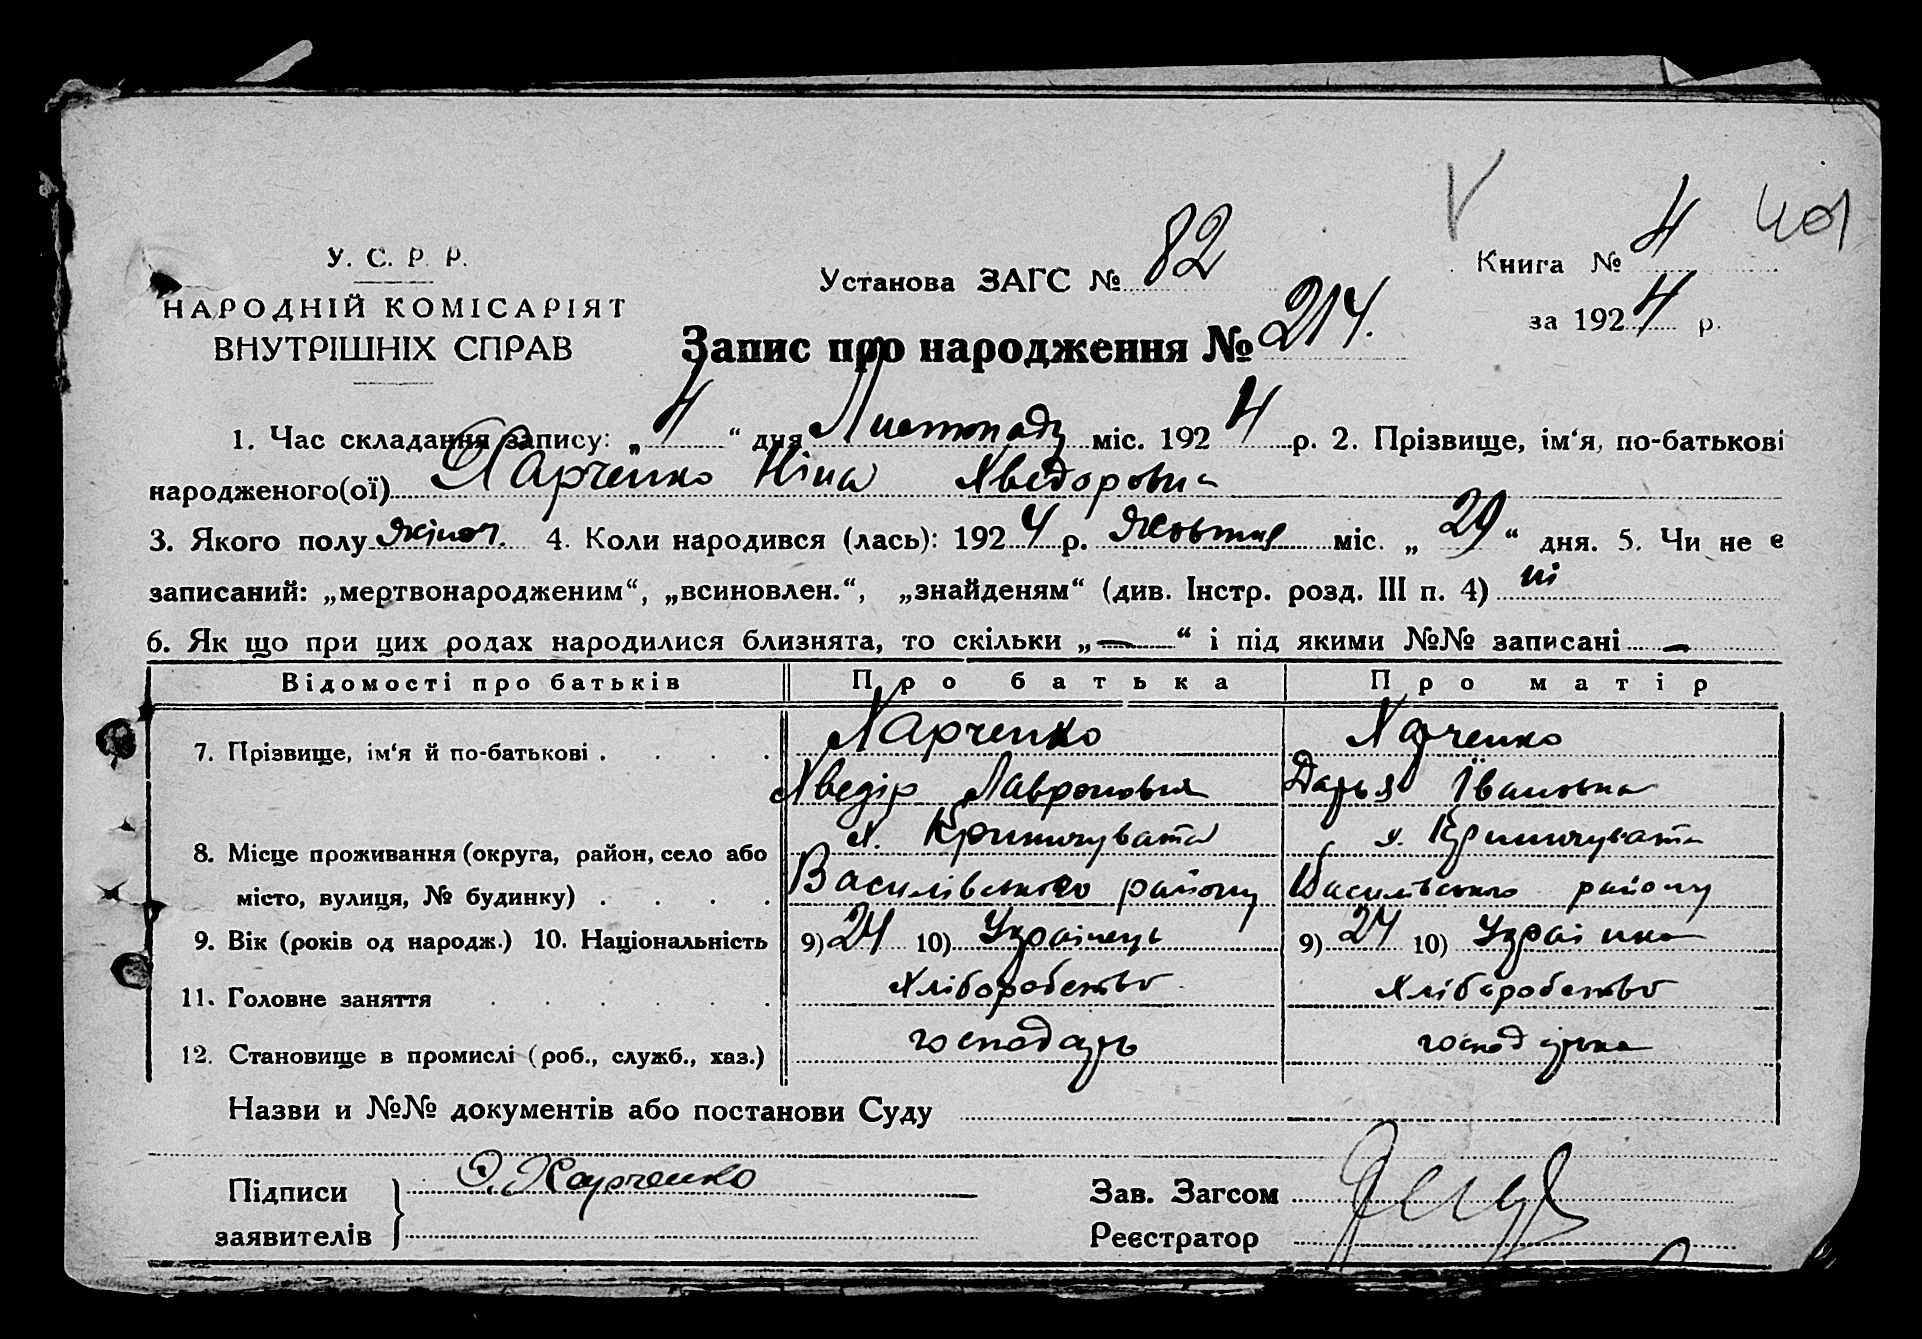 401
У. С. Р. Р.
НАРОДНІЙ КОМІСАРІЯТ
ВНУТРІШНІХ СПРАВ
Установа ЗАГС № 82
Книга № 4
за 1924 р.
Запис про народження № 214.
1. Час складання запису: „4“ дня Листопаду міс. 1924 р. 2. Прізвище, ім‘я, по-батькові
народженого(ої) Харченко Ніна Хведоровна
3. Якого полу жіноч. 4. Коли народився (лась): 1924 р. Жовтня міс. „29“ дня. 5. Чи не є
записаний: „мертвонародженим“, „всиновлен.“, „знайденям“ (див. Інстр. розд. III п. 4) ні
6. Як що при цих родах народилися близнята, то скільки „—“ і під якими №№ записані —
Відомості про батьків Про батька Про матір
7. Прізвище, ім‘я й по-батькові . . . . Харченко Харченко
Хведір Дарья Івановна
8. Місце проживання (округа, район, село або х. Криничувата х. Криничувата
місто, вулиця, № будинку) . . . . Василівського району Василівського району
9. Вік (років од народж.) 10. Національність 9) 24 10) Українець 9) 24 10) Українка
11. Головне заняття . . . . . Хліборобство Хліборобство
12. Становище в промислі (роб., служб., хаз.) господарь господарька
Назви и №№ документів або постанови Суду
Підписи Харченко
заявителів
Зав. Загсом
Реєстратор